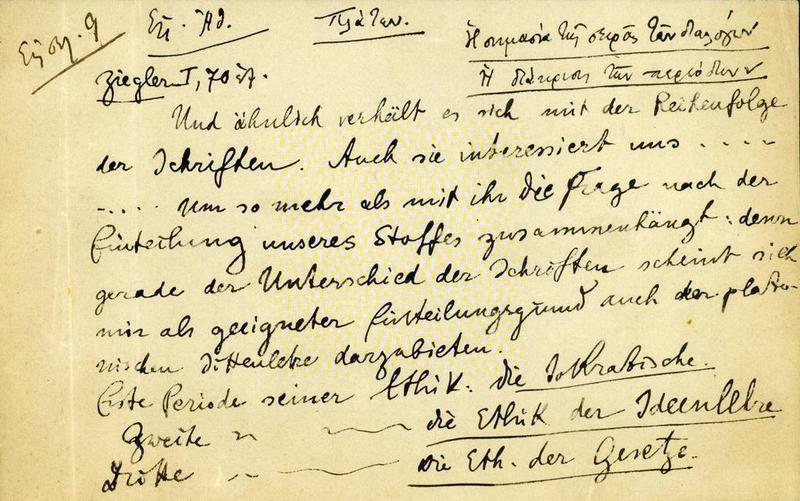 Εἰσαγ. 9
Εἰσ. Ἠθ.
Πλάτων.
Ἡ σημασία τῆς σειρᾶς τῶν διαλόγων
Ἡ διάκρισις τῶν περιόδων
Ziegler I, 70 ἑξ.
Und ähnlich verhält es sich mit der Reihenfolge
der Schriften. Auch sie interessiert uns ....
.... um so mehr als mit ihr die Frage nach der
Einteilung unseres Stoffes zusammenhängt: denn
gerade der Unterschied der Schriften scheint sich
mir als geeigneter Einteilungsgrund auch der plato-
nischen Sittenlehre darzubieten.
Erste Periode seiner Ethik: die sokratische.
Zweite " — die Ethik der Ideenlehre
Dritte " — die Eth. der Gesetze.